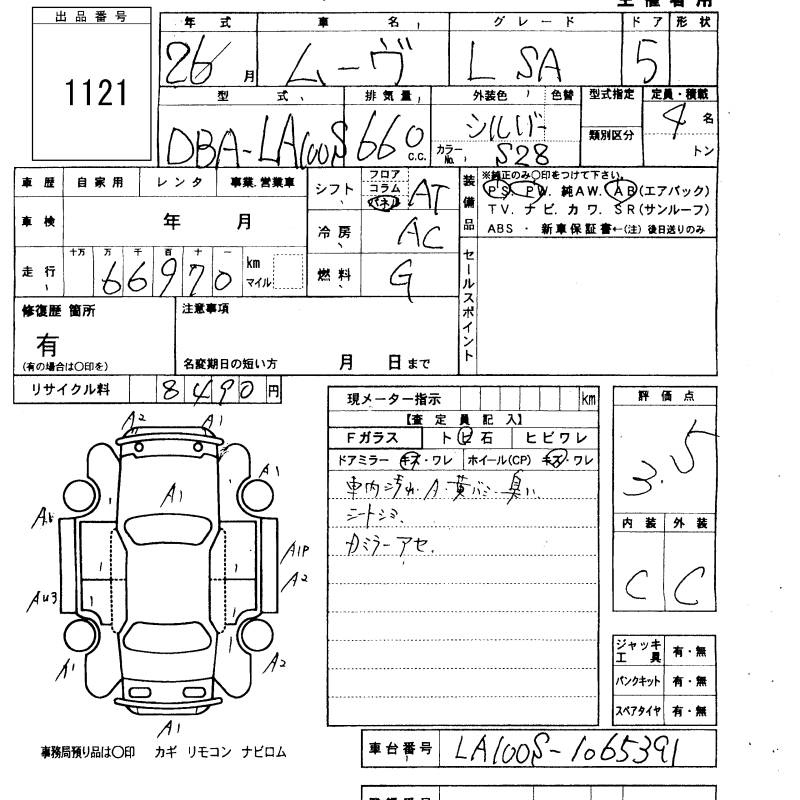 出品番号
1121
年式 車名 グレード ドア 形状
26月 ムーヴ L SA 5
型式 排気量 外装色 色替 型式指定 定員・積載
DBA-LA100S 660 c.c. シルバー カラーNo. S28 類別区分 4名 トン
車歴 自家用 レンタ 事業.営業車
車検 年 月
走行 十万 万 千 百 十 一
66970 km マイル
シフト フロア コラム パネル AT
冷房 AC
燃料 G
装備品
※純正のみ〇印をつけて下さい。
PS. PW. 純AW. AB(エアバック)
TV. ナビ. カワ. SR(サンルーフ)
ABS ・ 新車保証書←(注) 後日送りのみ
セールスポイント
修復歴 箇所
有
(有の場合は〇印を)
注意事項
名変期日の短い方 月 日まで
リサイクル料 8490円
現メーター指示 km
【査定員記入】
Fガラス トビ石 ヒビワレ
ドアミラー キズ・ワレ ホイール(CP) キズ・ワレ
車内汚れ・A・黄バミ・臭い
シートシミ.
カミラーアセ.
評価点
3.5
内装 外装
C C
ジャッキ工具 有・無
パンクキット 有・無
スペアタイヤ 有・無
A2 A1
A1 A1
A1P
AU3 A2
1 1
1 1
A1 A2
A1
事務局預り品は〇印 カギ リモコン ナビロム
車台番号 LA100S-1065391